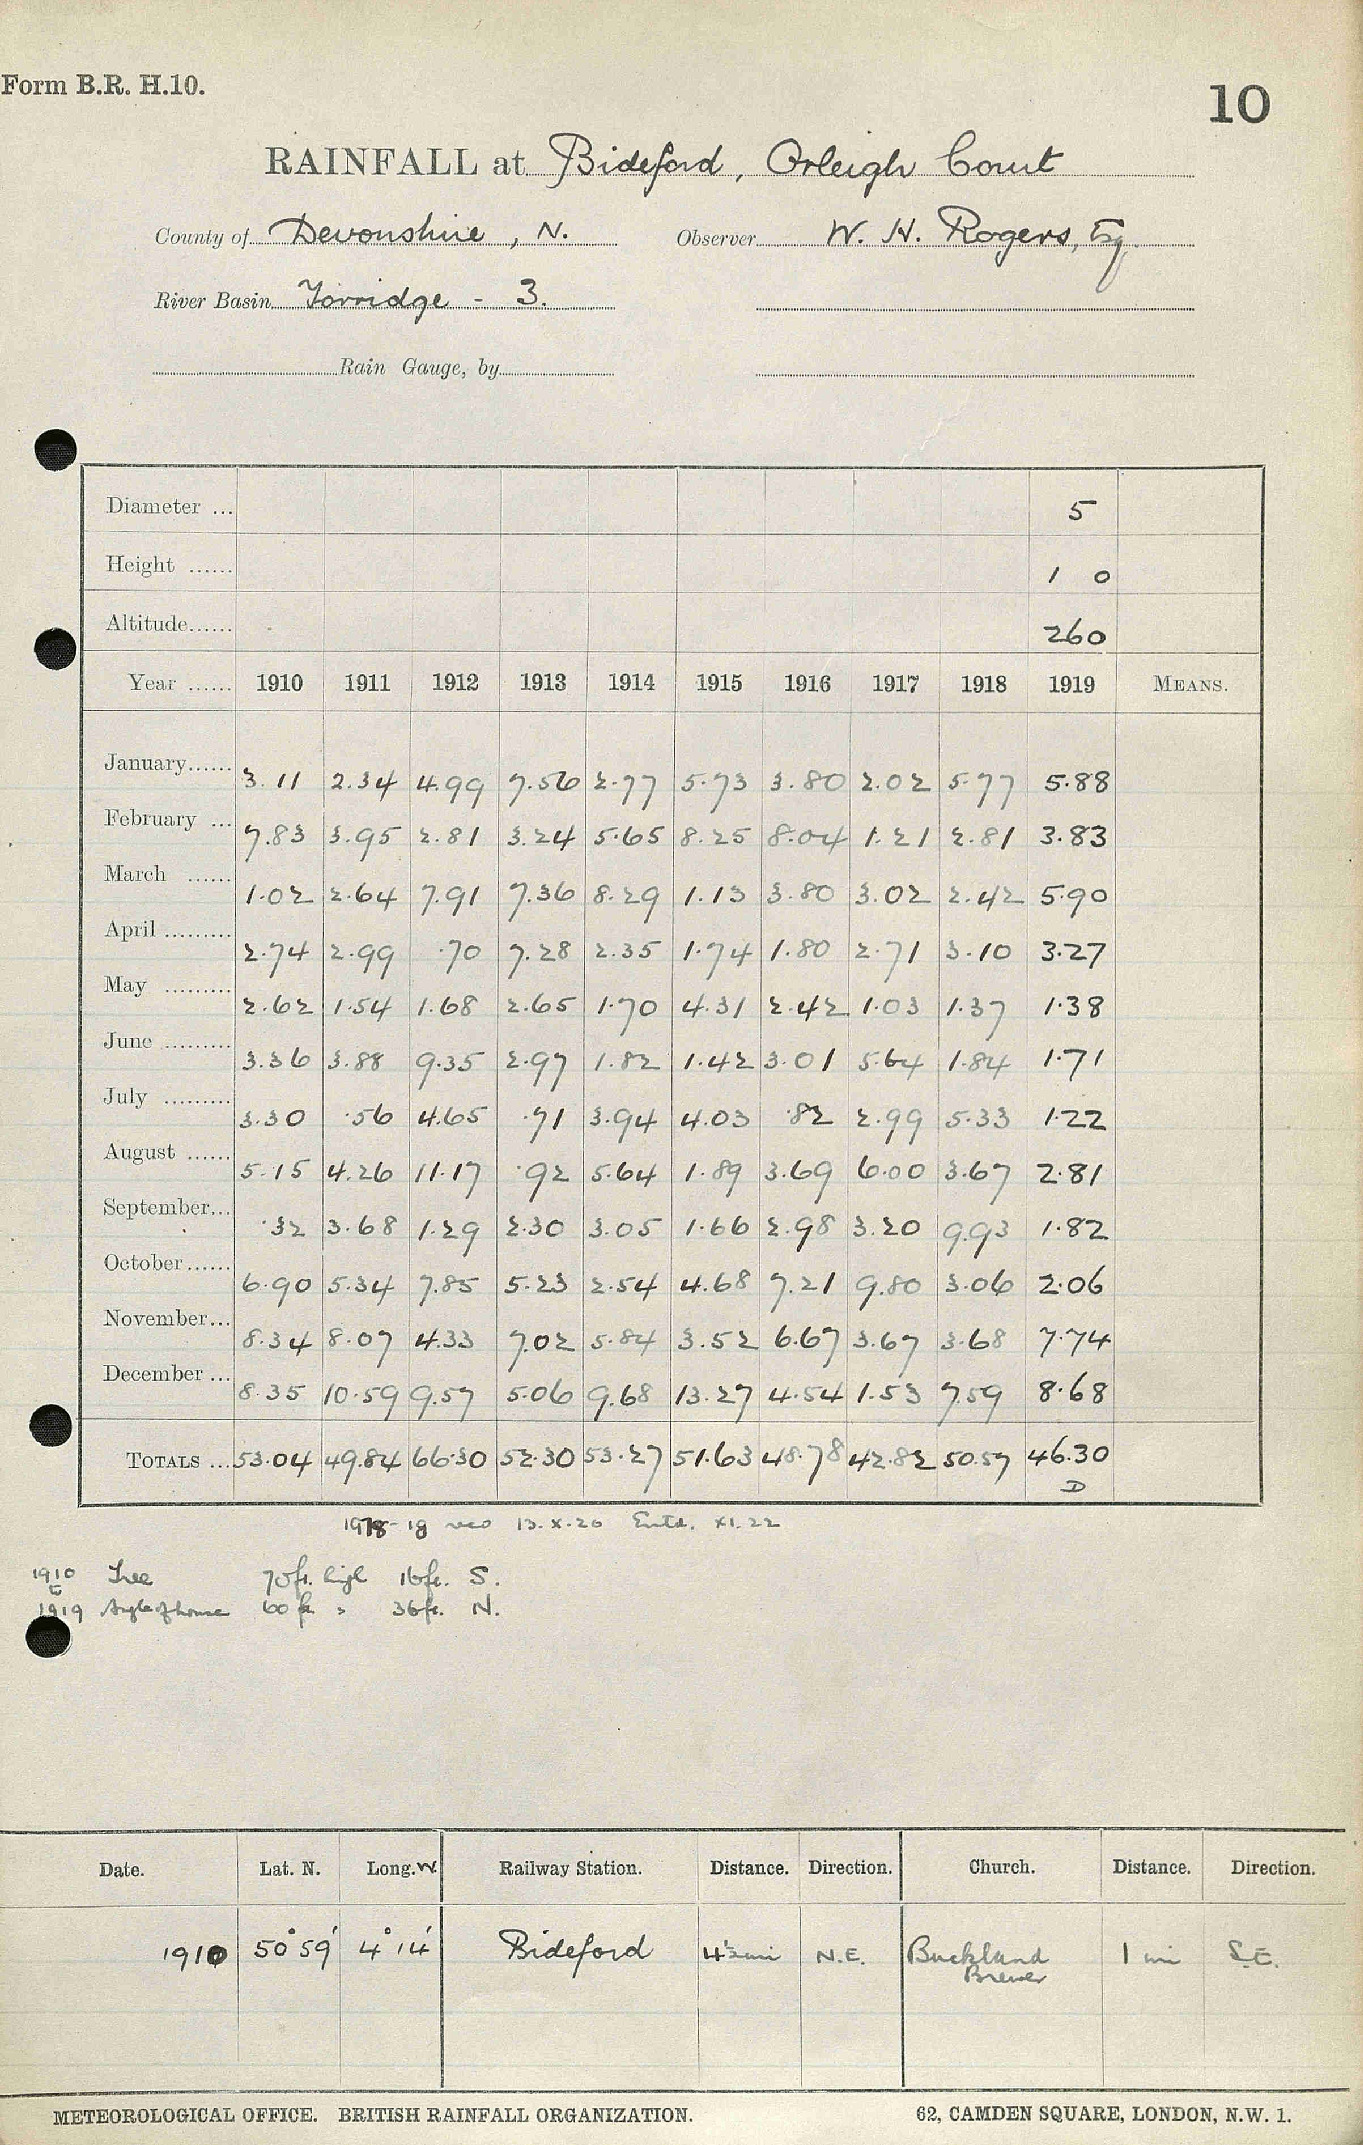 Form B.R. H.10.
10
RAINFALL at Bideford, Orleigh Court
County of Devonshire, N. Observer W. H. Rogers, Esq.
River Basin Torridge - 3.
Rain Gauge, by
Diameter ... 5
Height ...... 1 0
Altitude...... 260
Year ...... 1910 1911 1912 1913 1914 1915 1916 1917 1918 1919 MEANS.
January...... 3.11 2.34 4.99 7.56 2.77 5.73 3.80 2.02 5.77 5.88
February ... 7.83 3.95 2.81 3.24 5.65 8.25 8.04 1.21 2.81 3.83
March ...... 1.02 2.64 7.91 7.36 8.29 1.13 3.80 3.02 2.42 5.90
April ......... 2.74 2.99 .70 7.28 2.35 1.74 1.80 2.71 3.10 3.27
May ......... 2.62 1.54 1.68 2.65 1.70 4.31 2.42 1.03 1.37 1.38
June ......... 3.36 3.88 9.35 2.97 1.82 1.42 3.01 5.64 1.84 1.71
July ......... 3.30 .56 4.65 .71 3.94 4.03 .82 2.99 5.33 1.22
August ...... 5.15 4.26 11.17 .92 5.64 1.89 3.69 6.00 3.67 2.81
September... .32 3.68 1.29 2.30 3.05 1.66 2.98 3.20 9.93 1.82
October...... 6.90 5.34 7.85 5.23 2.54 4.68 7.21 9.80 3.06 2.06
November... 8.34 8.07 4.33 7.02 5.84 3.52 6.67 3.67 3.68 7.74
December ... 8.35 10.59 9.57 5.06 9.68 13.27 4.54 1.53 7.59 8.68
TOTALS ... 53.04 49.84 66.30 52.30 53.27 51.63 48.78 42.82 50.57 46.30
D
18 rec 13.X.20 Entd. XI.22
1910 Tree 70ft. high 16ft. S.
1919 Angle of house 60 ft. " 36ft. N.
Date. Lat. N. Long. W. Railway Station. Distance. Direction. Church. Distance. Direction.
1910 50° 59' 4° 14' Bideford mi N.E. Buckland 1 mi S.E.
Brewer
METEOROLOGICAL OFFICE. BRITISH RAINFALL ORGANIZATION. 62, CAMDEN SQUARE, LONDON, N.W. 1.